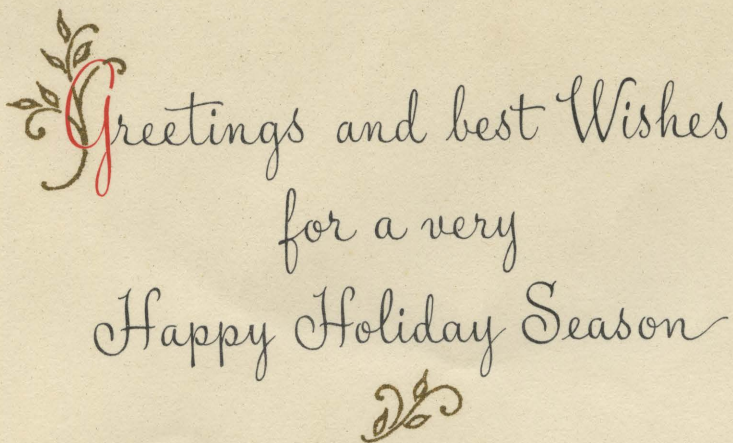 Greetings and best Wishes
for a very
Happy Holiday Season